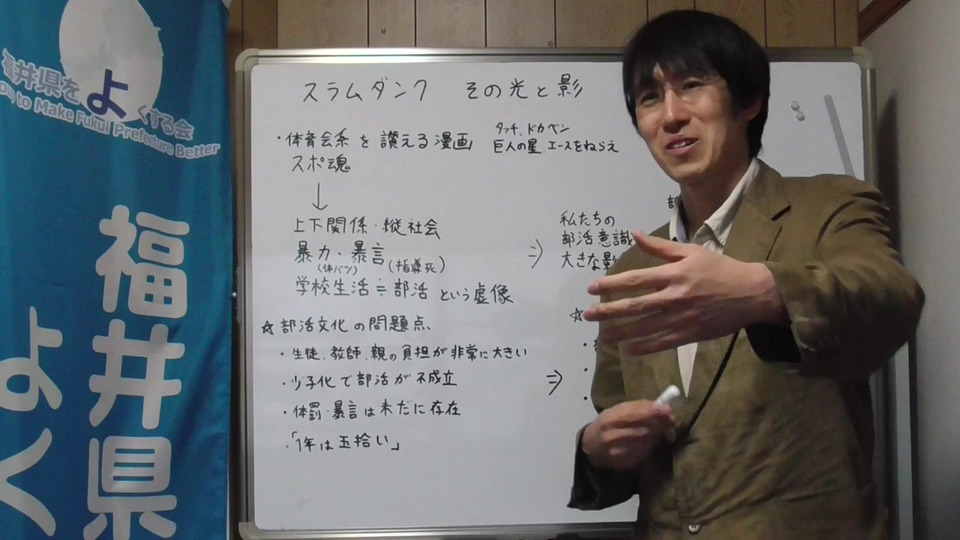 福井県をよくする会
to Make Fukui Prefecture Better
福井県
よく
スラムダンク その光と影
・体育会系を讃える漫画
スポ魂
タッチ、ドカベン
巨人の星 エースをねらえ
↓
上下関係・縦社会
暴力・暴言
(体バツ) (指導死)
学校生活≒部活 という虚像
⇒
私たちの
部活意識
大きな影
☆部活文化の問題点、
・生徒、教師、親の負担が非常に大きい
・少子化で部活が不成立
・体罰・暴言は未だに存在
・「1年は玉拾い」
⇒
☆